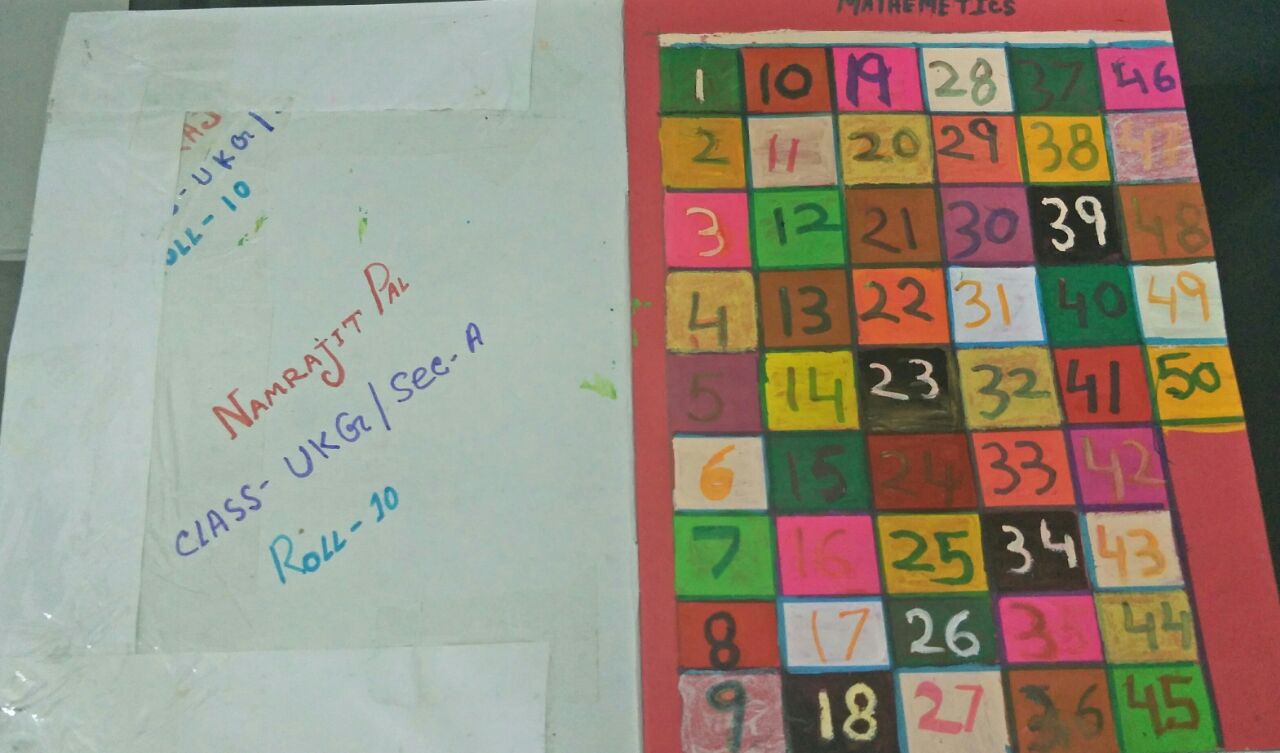 AJ
S-UKG/.
OLL-10
NAMRAJIT PAL
CLASS- UKG/SEC-A
ROLL-10
MATHEMETICS
1 10 19 28 37 46
2 11 20 29 38 47
3 12 21 30 39 48
4 13 22 31 40 49
5 14 23 32 41 50
6 15 24 33 42
7 16 25 34 43
8 17 26 35 44
9 18 27 36 45